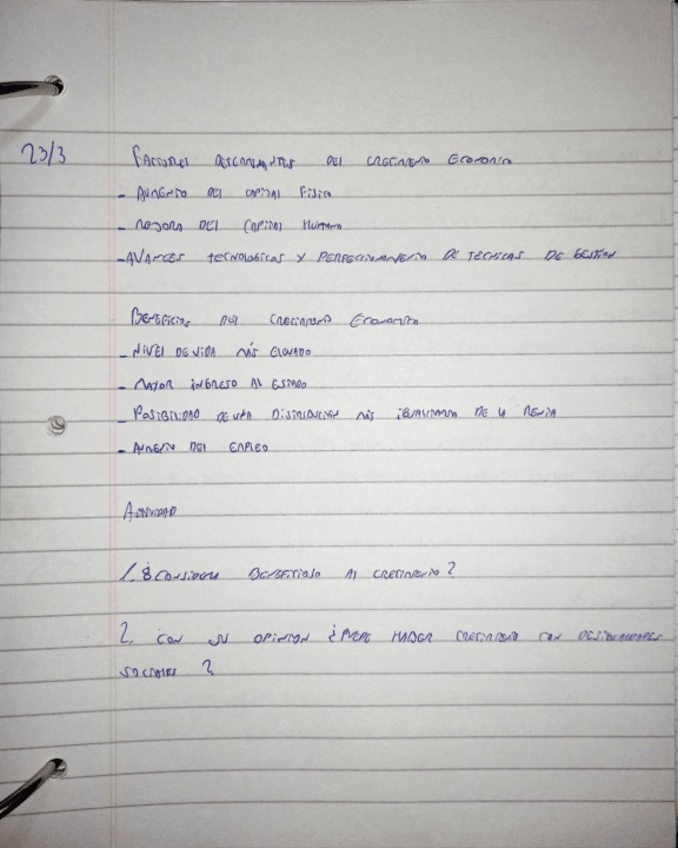 23/3
FACTORES DETERMINANTES DEL CRECIMIENTO ECONOMICO
- AUMENTO DEL CAPITAL FISICO
- MEJORA DEL CAPITAL HUMANO
- AVANCES TECNOLOGICAS Y PERFECCIONAMIENTO DE TECNICAS DE GESTION
BENEFICIOS DEL CRECIMIENTO ECONOMICO
- NIVEL DE VIDA MÁS ELEVADO
- MAYOR INGRESO AL ESTADO
- POSIBILIDAD DE UNA DISTRIBUCION MÁS IGUALITARIA DE LA RENTA
- AUMENTO DEL EMPLEO
ACTIVIDAD
1. ¿CONSIDERA BENEFICIOSO AL CRECIMIENTO?
2. CON SU OPINION ¿PUEDE HABER CRECIMIENTO CON DESIGUALDADES
SOCIALES?